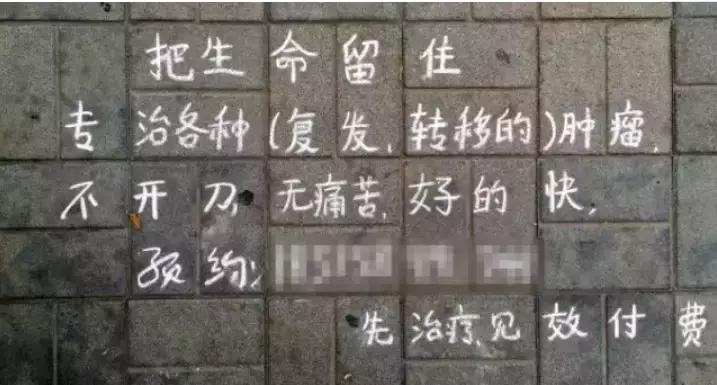 把生命留住
专治各种(复发,转移的)肿瘤,
不开刀,无痛苦,好的快,
预约:
先治疗,见效付费